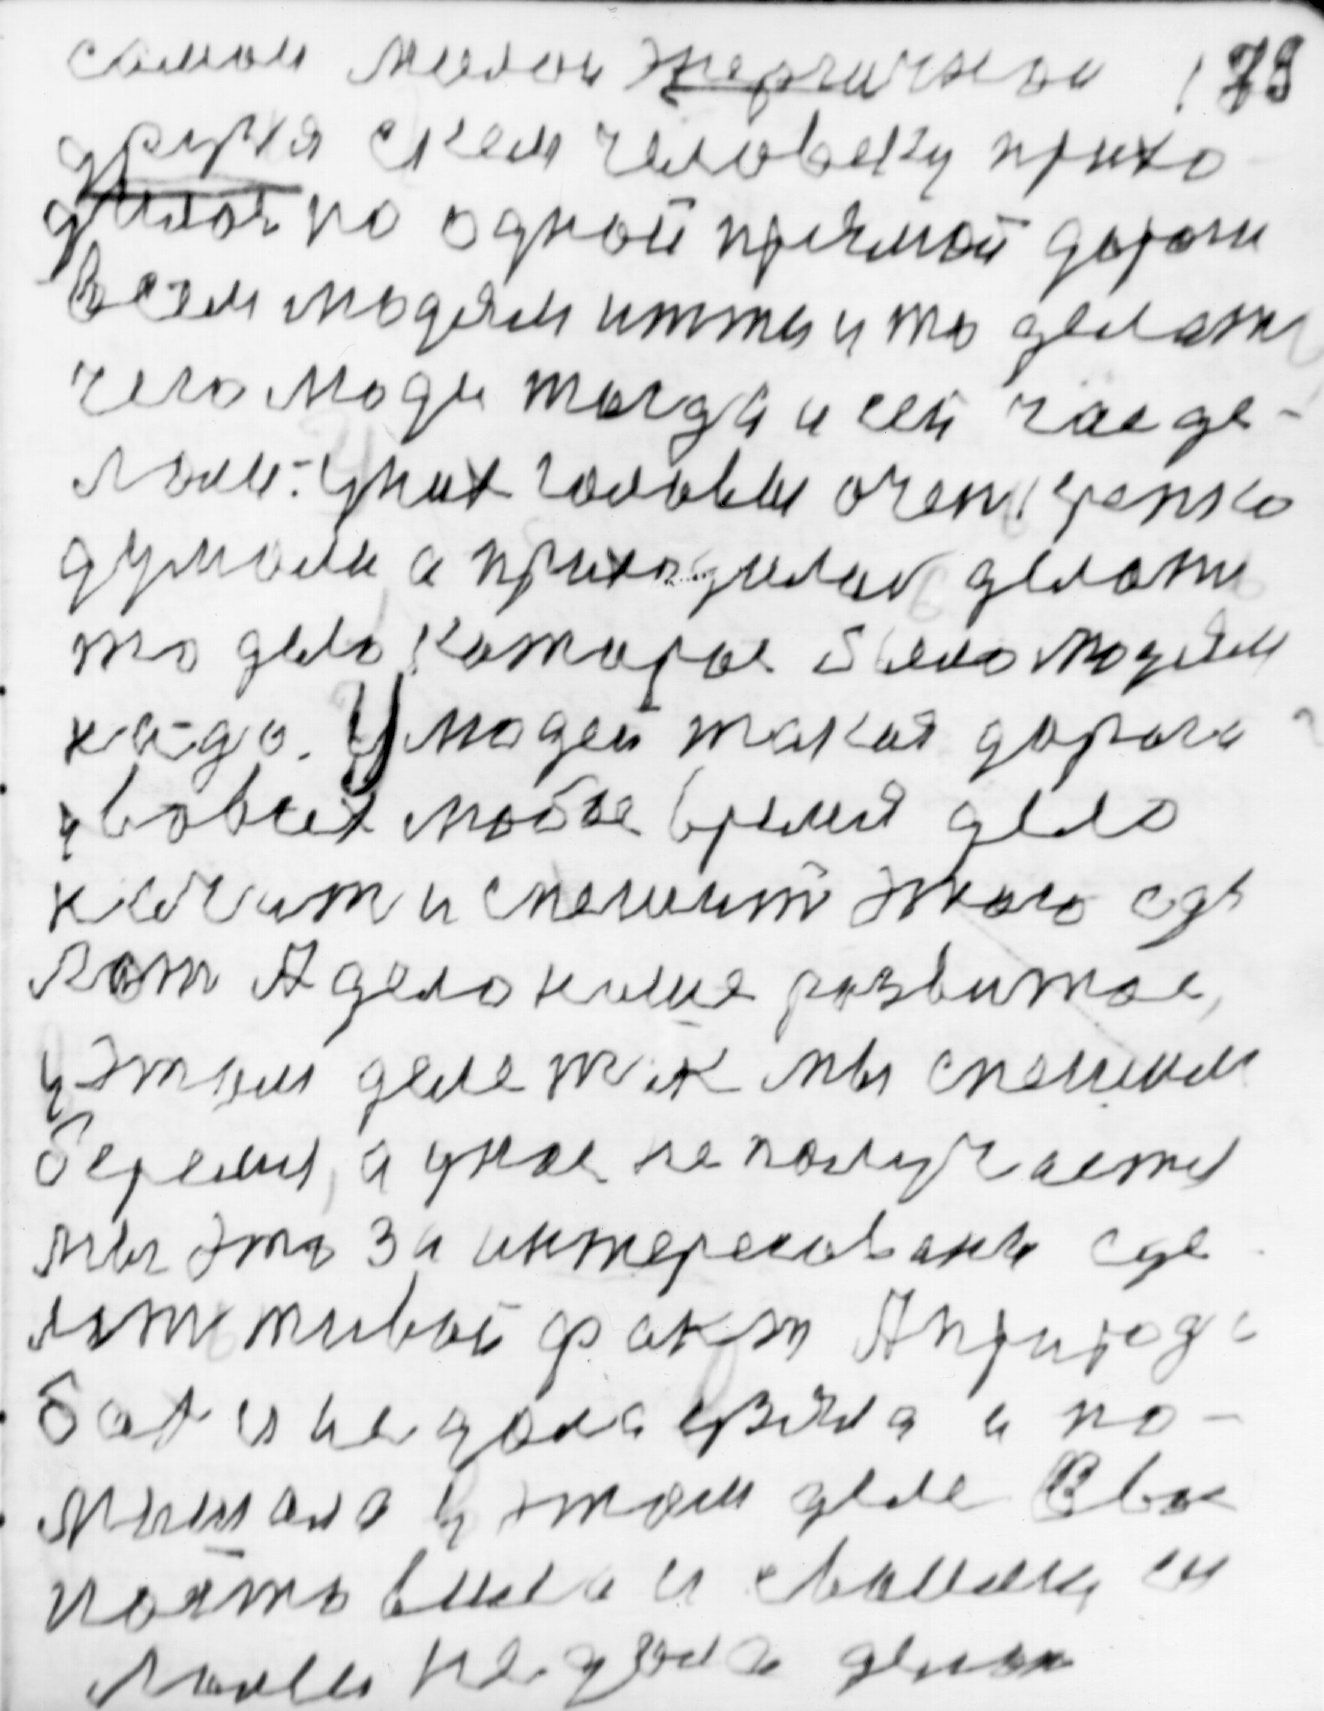 самом милом энергичном 179
друга скем человеку прихо
дилос по одной прямой дороги
всем людям итти и то делат
чего люди тогда и сей час де-
лали. У них головы очен крепко
думали а приходилос делат
то дело каторое было людям
надо. У людей такая дорога
у во всех любое время дело
начат и спешит этого сде
лат А дело наше развитое,
у этом деле так мы спешим
беремся, а у нас не получается
мы это заинтересованы сде
лат живой факт А природа
бат и не дала взяла и по-
мешала у этом деле Свае
что то ввила и своими си
лами не дала делат